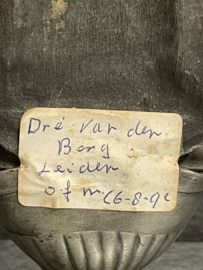 Dré van den
Berg
Leiden
o f m.